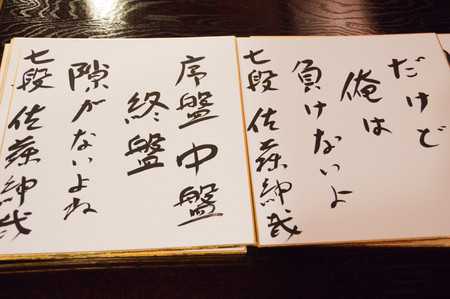 序盤中盤
終盤
隙がないよね
七段 佐藤紳哉
だけど
俺は
負けないよ
七段 佐藤紳哉